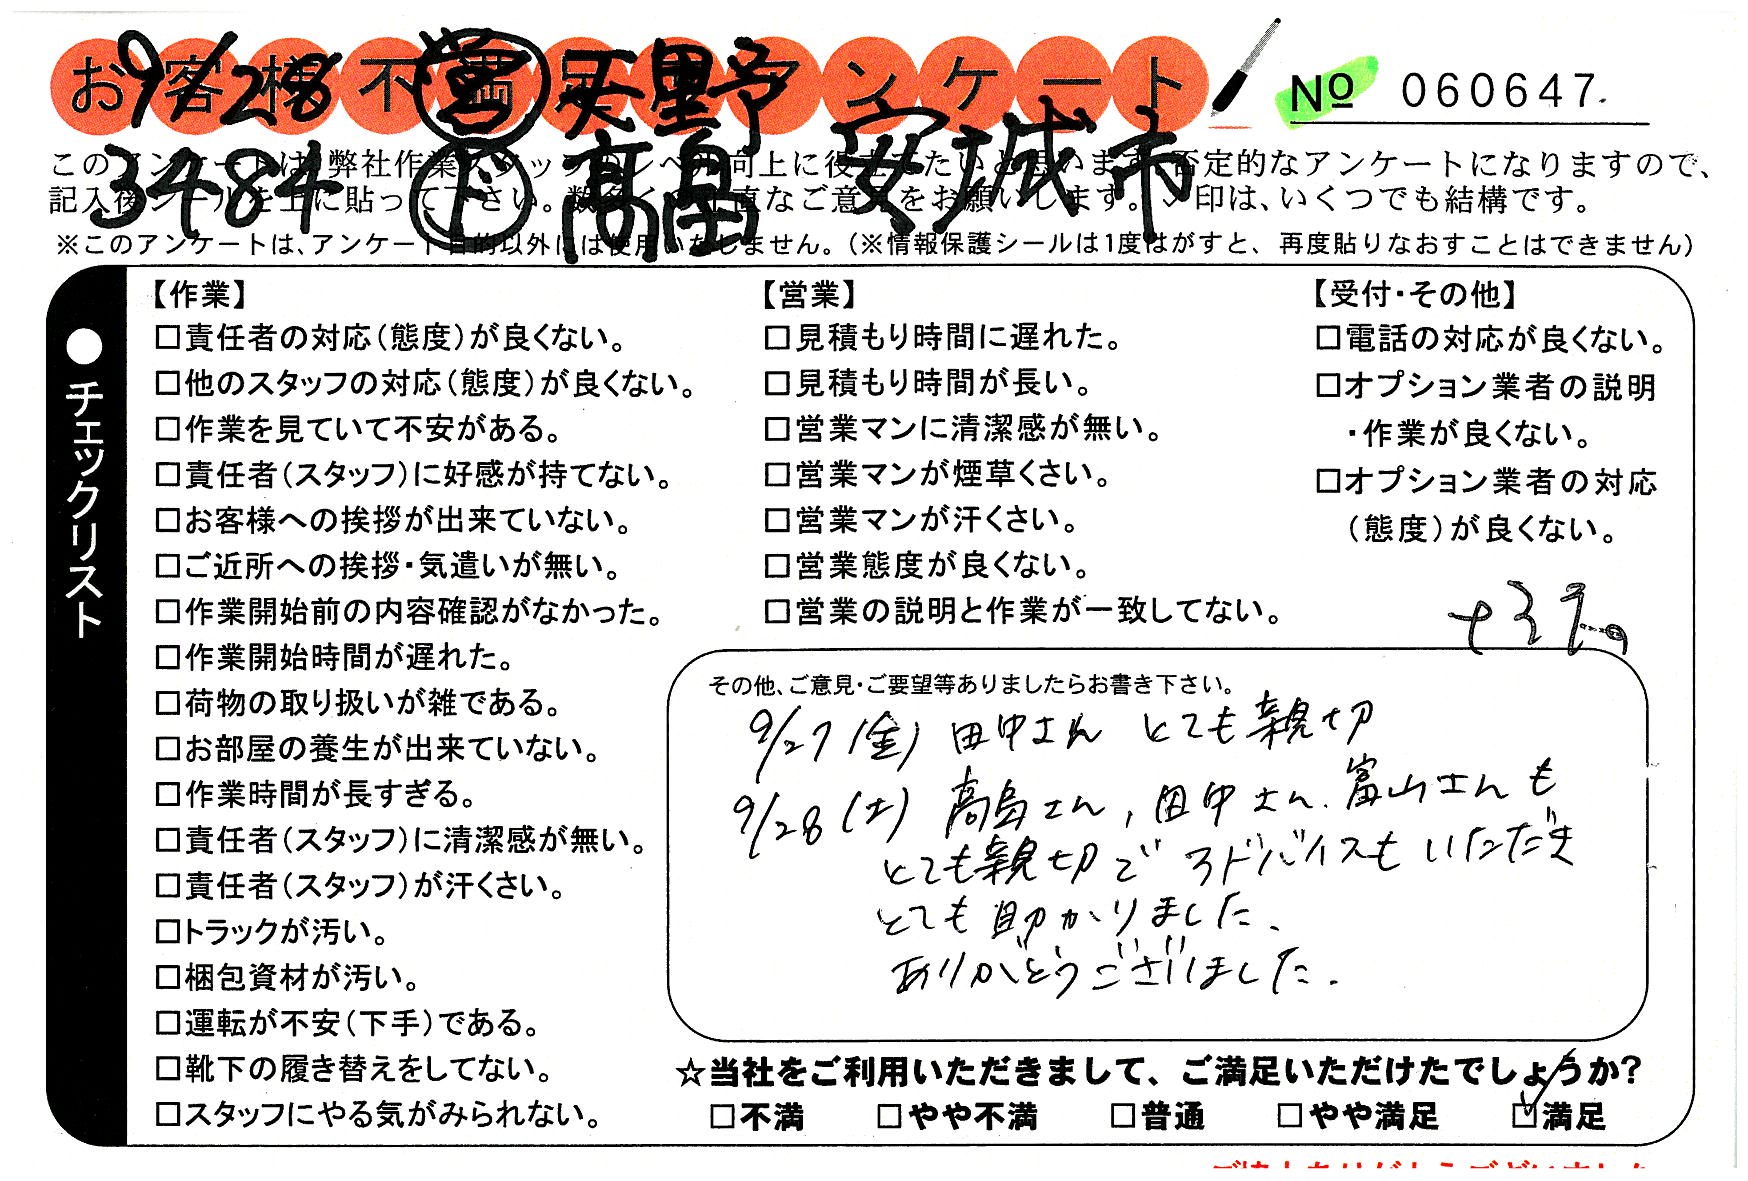 お客様不満足アンケート
9/28 営 天野
No 060647
3484 ド 高畠 安城市
このアンケートは、弊社作業スタッフのレベル向上に役立てたいと思います。否定的なアンケートになりますので、
記入後シールを上に貼って下さい。数多くの正直なご意見をお願いします。✓印は、いくつでも結構です。
※このアンケートは、アンケート目的以外には使用いたしません。(※情報保護シールは1度はがすと、再度貼りなおすことはできません)
●チェックリスト
【作業】
□責任者の対応(態度)が良くない。
□他のスタッフの対応(態度)が良くない。
□作業を見ていて不安がある。
□責任者(スタッフ)に好感が持てない。
□お客様への挨拶が出来ていない。
□ご近所への挨拶・気遣いが無い。
□作業開始前の内容確認がなかった。
□作業開始時間が遅れた。
□荷物の取り扱いが雑である。
□お部屋の養生が出来ていない。
□作業時間が長すぎる。
□責任者(スタッフ)に清潔感が無い。
□責任者(スタッフ)が汗くさい。
□トラックが汚い。
□梱包資材が汚い。
□運転が不安(下手)である。
□靴下の履き替えをしてない。
□スタッフにやる気がみられない。
【営業】
□見積もり時間に遅れた。
□見積もり時間が長い。
□営業マンに清潔感が無い。
□営業マンが煙草くさい。
□営業マンが汗くさい。
□営業態度が良くない。
□営業の説明と作業が一致してない。
【受付・その他】
□電話の対応が良くない。
□オプション業者の説明
・作業が良くない。
□オプション業者の対応
(態度)が良くない。
その他、ご意見・ご要望等ありましたらお書き下さい。
9/27(金) 田中さん とても親切
9/28(土) 高畠さん,田中さん.富山さんも
とても親切でアドバイスもいただき
とても助かりました.
ありがとうございました.
☆当社をご利用いただきまして、ご満足いただけたでしょうか?
□不満 □やや不満 □普通 □やや満足 ☑満足